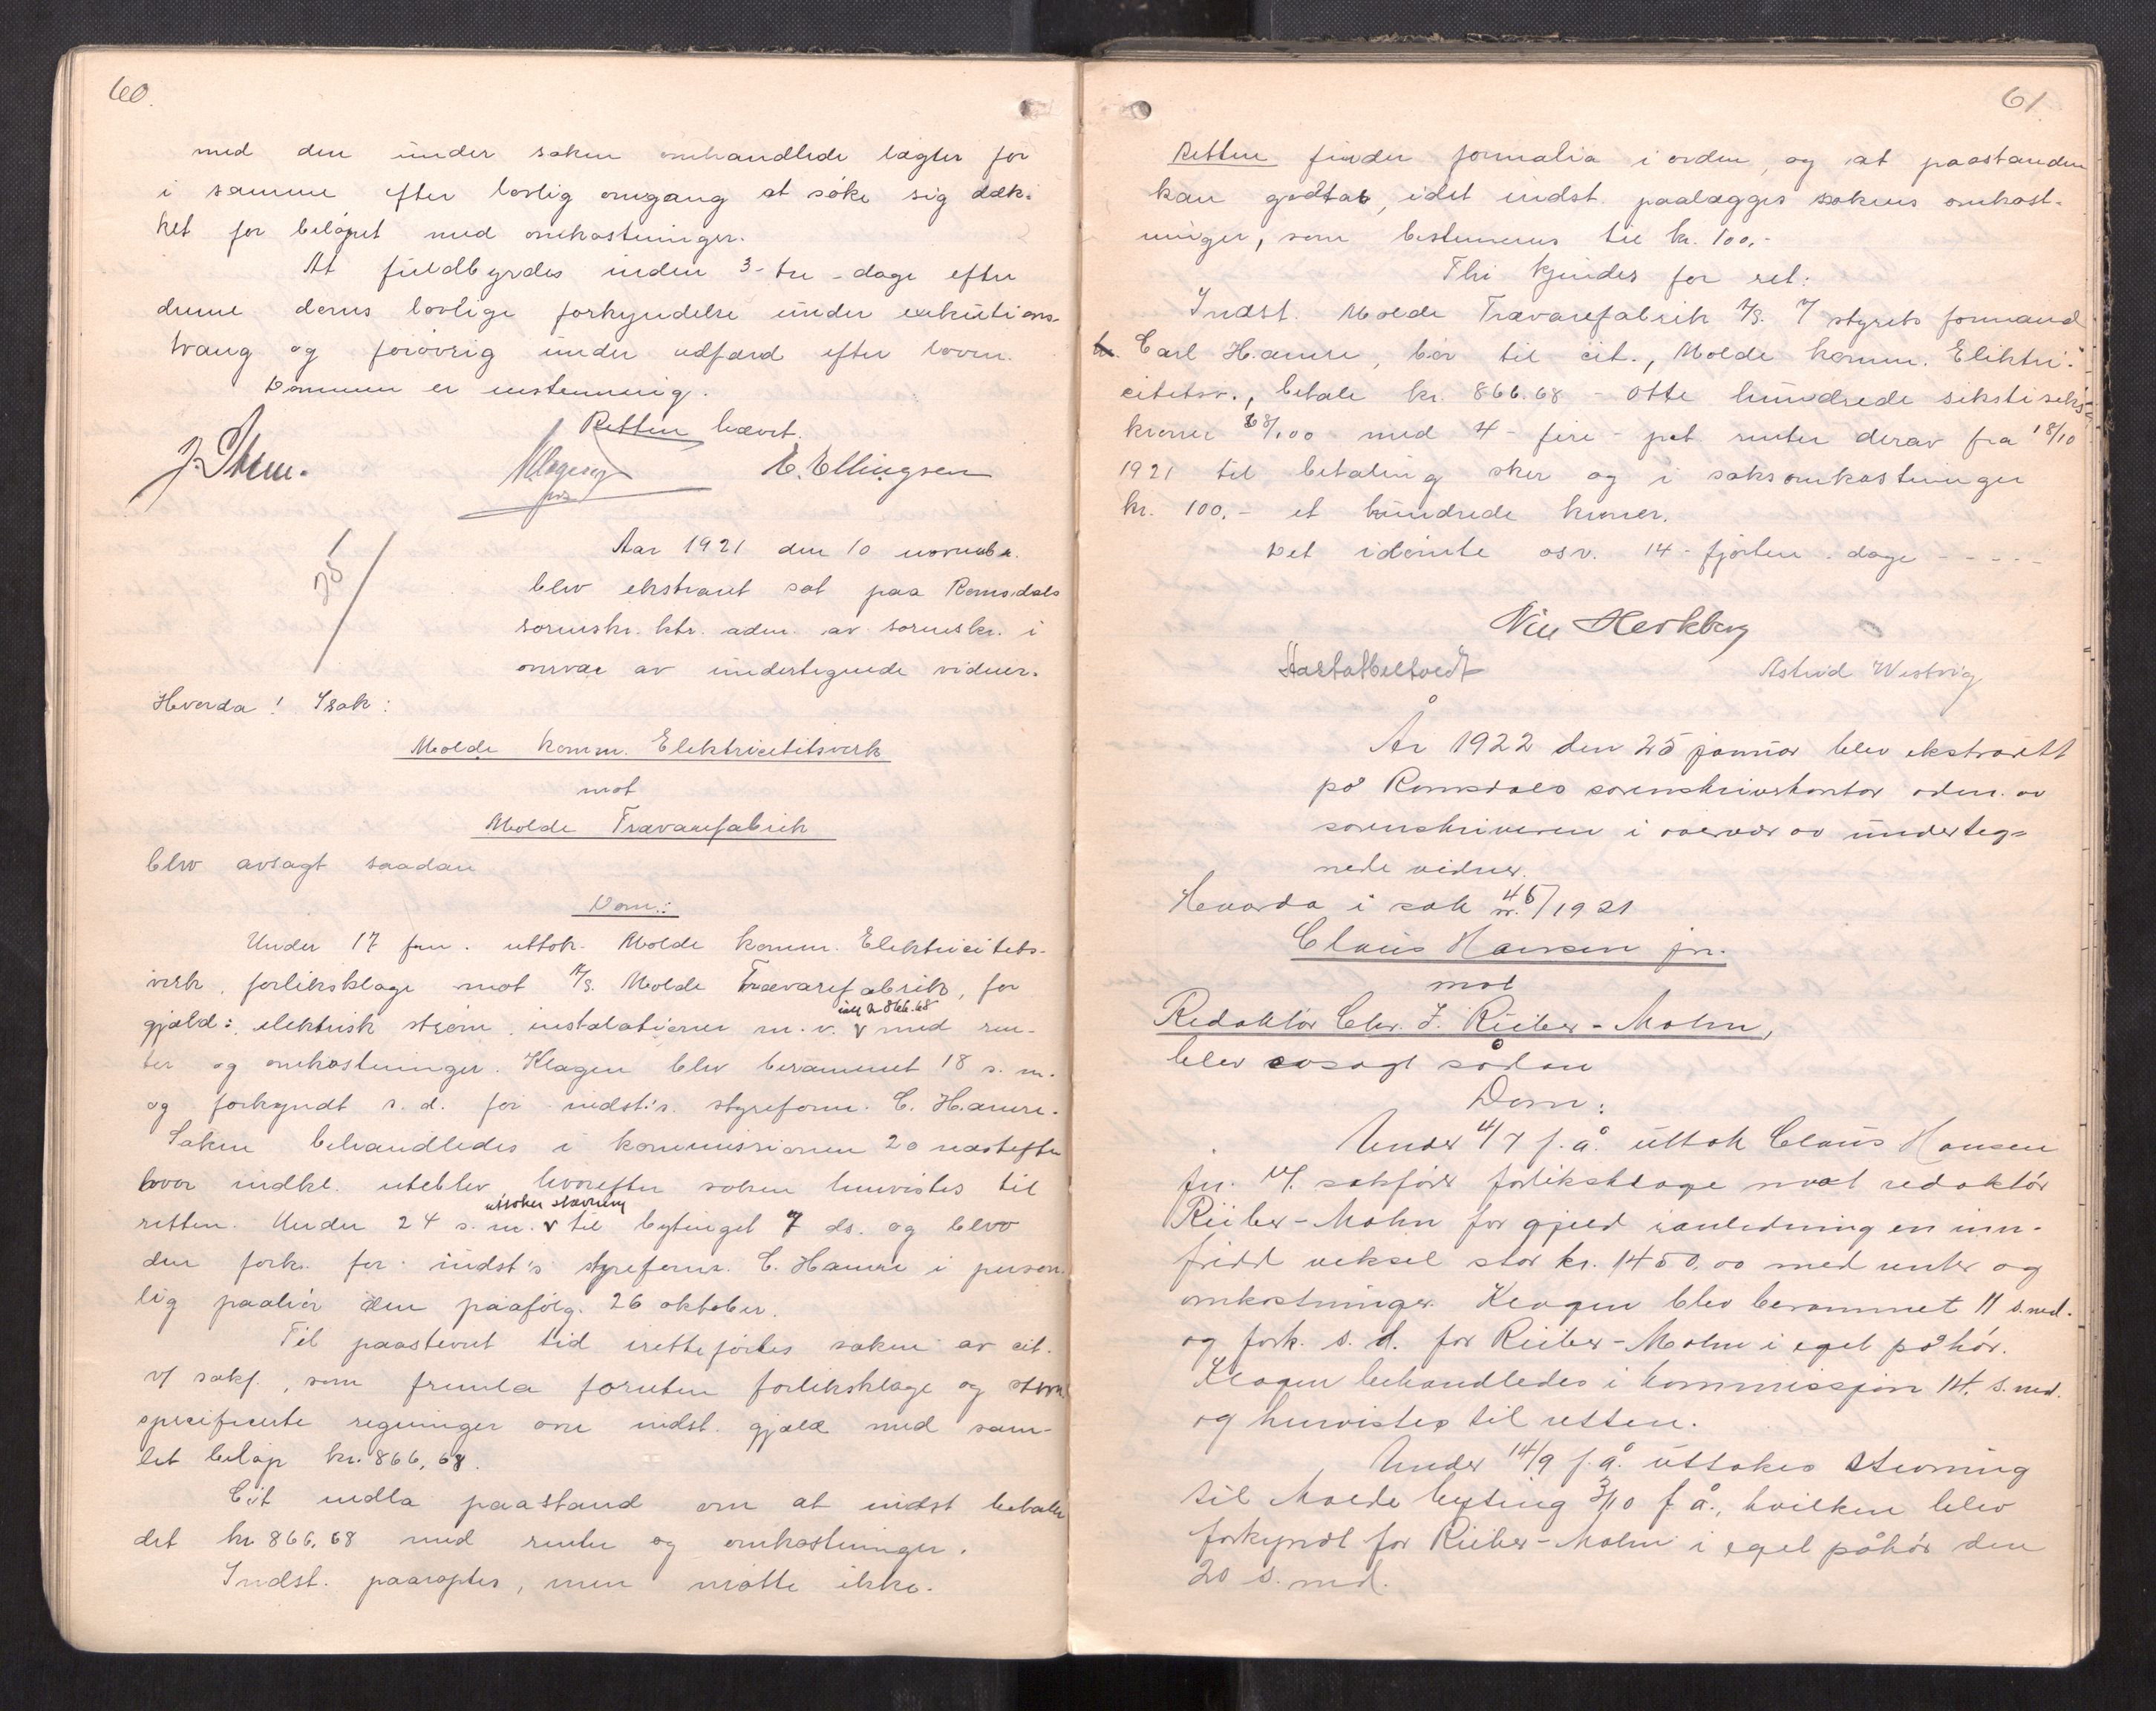 60.
med den under saken omhandlede lægter for
i samme efter lovlig omgang at søke sig dæk-
ket for beløpet med omkostninger.
At fuldbyrdes inden 3-tre-dage efter
denne doms lovlige forkyndelse under exekutions-
tvang og forøvrig under adfærd efter loven.
Dommen er enstemmig.
Retten hævet.
E. Ellingsen
Aar 1921 den 10 novembr.
blev ekstraret sat paa Romsdals
sorenskr. ktr. adm. av sorenskr. i
overvær av undertegnede vidner.
Hvorda! I sak:
Molde komm. Elektricitetsverk
mot
Molde Trævarefabrik
blev avsagt saadan
Dom:
Under 17 f.m. uttok Molde komm. Elektricitets-
verk forliksklage mot A/S. Molde Trævarefabrik, for
gjæld: elektrisk strøm, instalationer m.v. kr 866.68 med ren-
ter og omkostninger. Klagen blev berammet 18 s.m.
og forkyndt s.d. for indst's. styreform. C. Hamre.
Saken behandledes i kommissionen 20 næstefter
hvor indkl. uteblev, hvorefter saken henvistes til
retten. Under 24 s.m. uttokes stævning til bytinget 7 ds. og blev
den fork. for indst's styreform. C. Hamre i person-
lig paahør den paafølg. 26 oktober.
Til paastevnt tid iretteførtes saken av cit.
v/ sakf., som fremla foruten forliksklage og stevn.
specificerte regninger over indst. gjæld med sam-
let beløp kr. 866,68.
Cit nedla paastand om at indst betaler
det kr 866,68 med renter og omkostninger.
Indst. paaroptes, men møtte ikke.
61
Retten finder formalia i orden, og at paastanden
kan godtas, idet indst. paalægges sakens omkost-
ninger, som bestemmes til kr. 100,-
Thi kjendes for ret:
Indst. Molde Trævarefabrik A/S. v/ styrets formand
Carl Hamre, bør til cit., Molde komm. Elektri-
citetsv., betale kr. 866.68 - otte hundrede sekstiseks
kroner 68/100 - med 4 - fire - pct. renter derav fra 18/10
1921 til betaling sker og i saksomkostninger
kr. 100.- et hundrede kroner.
Det idømte osv. 14 - fjorten - dage - - - - -
Astrid Westvig
År 1922 den 25 januar blev ekstrarett
på Romsdals sorenskriverkontor adm. av
sorenskriveren i overvær av underteg-
nede vidner.
Hvorda i sak nr. 45/1921
Claus Hansen jr.
mot
Redaktør Chr. J. Rieber-Mohn,
blev avsagt sådan
Dom:
Under 11/7 f.å. uttok Claus Hansen
jr. v/ sakfører forliksklage mot redaktør
Rieber-Mohn for gjeld i anledning en inn-
fridd veksel stor kr. 1450.00 med renter og
omkostninger. Klagen blev berammet 11 s.md.
og fork. s.d. for Rieber-Mohn i eget påhør.
Klagen behandledes i kommissjon 14. s.md.
og henvistes til retten.
Under 14/9 f.å. uttokes stevning
til Molde byting 3/10 f.å., hvilken blev
forkyndt for Rieber-Mohn i eget påhør den
20 s.md.